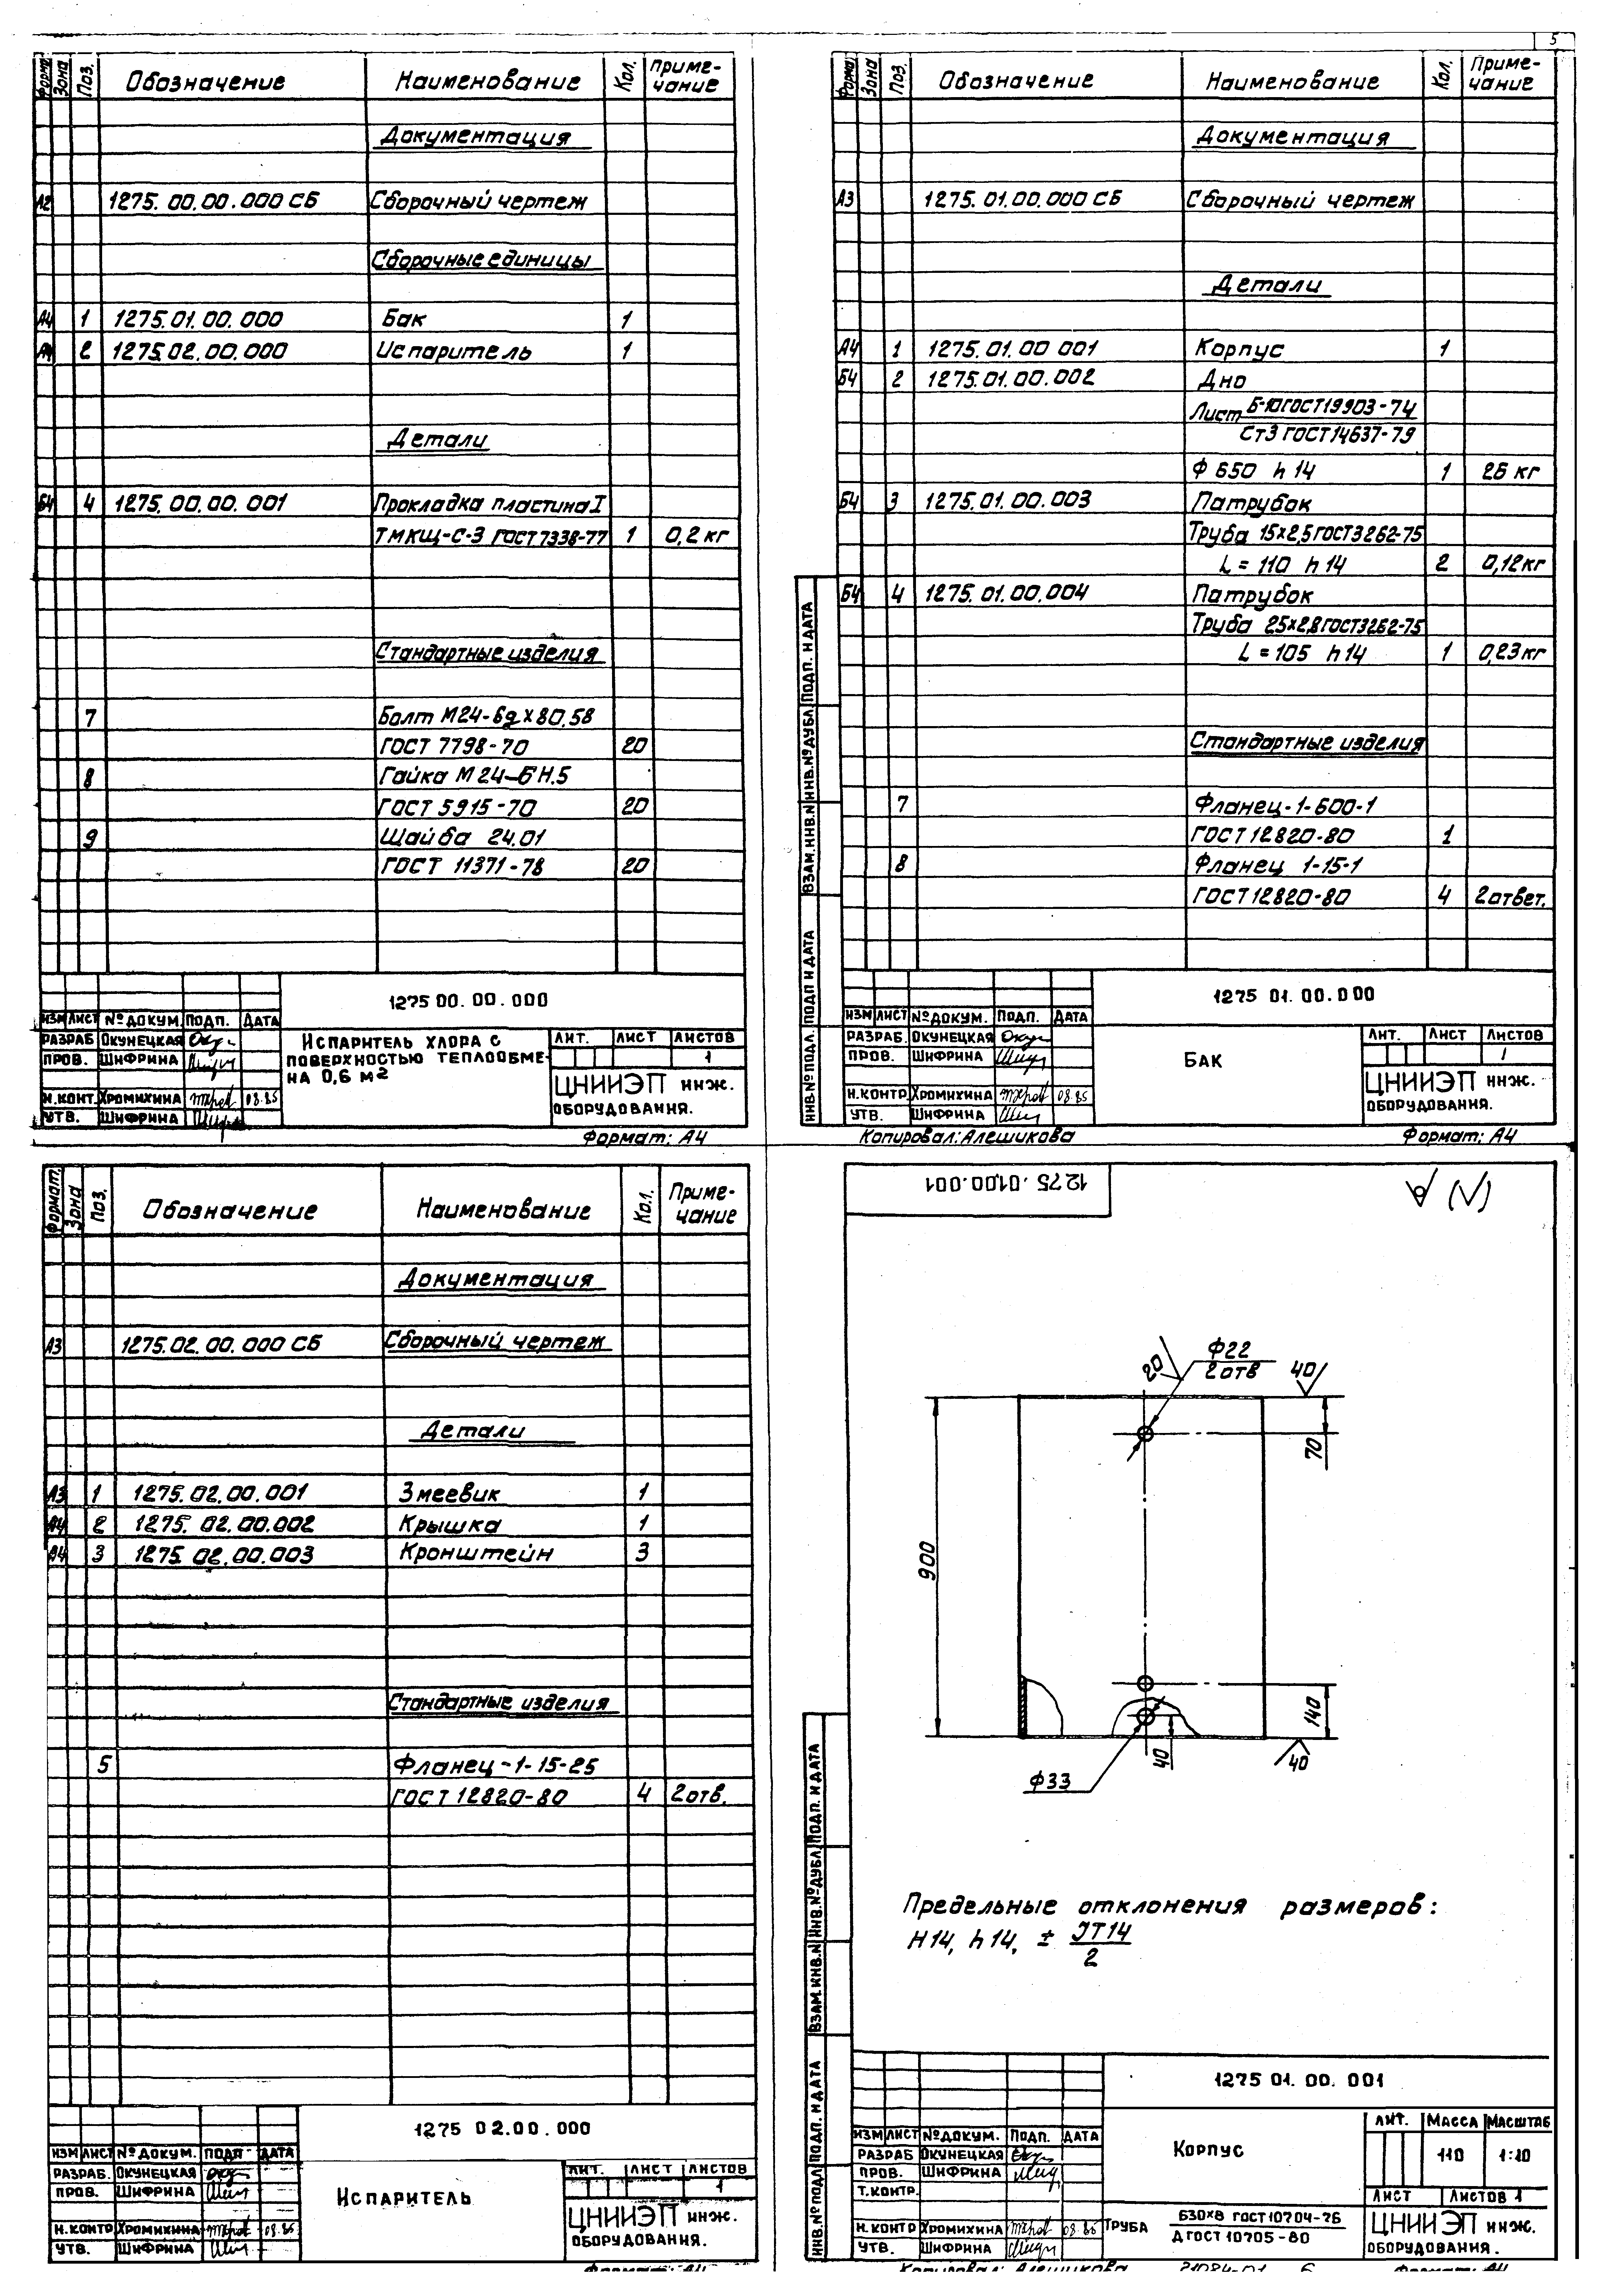 5
Форм. Зона Поз. Обозначение Наименование Кол. Приме-
чание
Документация
А2 1275.00.00.000 СБ Сборочный чертеж
Сборочные единицы
А4 1 1275.01.00.000 Бак 1
А4 2 1275.02.00.000 Испаритель 1
Детали
Б4 4 1275.00.00.001 Прокладка пластина I
ТМКЩ-С-3 ГОСТ 7338-77 1 0,2 кг
Стандартные изделия
7 Болт М24-6g×80.58
ГОСТ 7798-70 20
8 Гайка М24-6Н.5
ГОСТ 5915-70 20
9 Шайба 24.01
ГОСТ 11371-78 20
1275 00.00.000
ИЗМ ЛИСТ № ДОКУМ. ПОДП. ДАТА
РАЗРАБ ОКУНЕЦКАЯ
ПРОВ. ШИФРИНА
Н.КОНТ. ХРОМИХИНА 08.85
УТВ. ШИФРИНА
ИСПАРИТЕЛЬ ХЛОРА С
ПОВЕРХНОСТЬЮ ТЕПЛООБМЕ-
НА 0,6 М2
ЛИТ. ЛИСТ ЛИСТОВ
1
ЦНИИЭП ИНЖ.
ОБОРУДОВАНИЯ.
Формат: А4
Форма. Зона Поз. Обозначение Наименование Кол. Приме-
чание
Документация
А3 1275.01.00.000 СБ Сборочный чертеж
Детали
А4 1 1275.01.00 001 Корпус 1
Б4 2 1275.01.00.002 Дно
Лист Б-10 ГОСТ 19903-74
Ст3 ГОСТ 14637-79
Ф 650 h14 1 26 кг
Б4 3 1275.01.00.003 Патрубок
Труба 15×2,5 ГОСТ 3262-75
L = 110 h14 2 0,12 кг
Б4 4 1275.01.00.004 Патрубок
Труба 25×2,8 ГОСТ 3262-75
L = 105 h14 1 0,23 кг
Стандартные изделия
7 Фланец-1-600-1
ГОСТ 12820-80 1
8 Фланец 1-15-1
ГОСТ 12820-80 4 2 ответ.
ИНВ.№ ПОДЛ. ПОДП И ДАТА ВЗАМ.ИНВ.№ ИНВ.№ ДУБЛ ПОДП. И ДАТА
1275 01.00.000
ИЗМ ЛИСТ № ДОКУМ. ПОДП. ДАТА
РАЗРАБ. ОКУНЕЦКАЯ
ПРОВ. ШИФРИНА
Н.КОНТР ХРОМИХИНА 08.85
УТВ. ШИФРИНА
БАК
ЛИТ. ЛИСТ ЛИСТОВ
1
ЦНИИЭП ИНЖ.
ОБОРУДОВАНИЯ.
Копировал: Алешикова Формат: А4
Формат. Зона Поз. Обозначение Наименование Кол. Приме-
чание
Документация
А3 1275.02.00.000 СБ Сборочный чертеж
Детали
А3 1 1275.02.00.001 Змеевик 1
А4 2 1275.02.00.002 Крышка 1
А4 3 1275.02.00.003 Кронштейн 3
Стандартные изделия
5 Фланец-1-15-25
ГОСТ 12820-80 4 2 отв.
1275 02.00.000
ИЗМ ЛИСТ № ДОКУМ. ПОДП ДАТА
РАЗРАБ. ОКУНЕЦКАЯ
ПРОВ. ШИФРИНА
Н.КОНТР ХРОМИХИНА 08.85
УТВ. ШИФРИНА
ИСПАРИТЕЛЬ
ЛИТ. ЛИСТ ЛИСТОВ
1
ЦНИИЭП ИНЖ.
ОБОРУДОВАНИЯ.
Формат: А4
1275.01.00.001
(√)
20 Ф22
2 отв
40
70
900
140
40
40
Ф33
Предельные отклонения размеров:
Н14, h14, ± JT14
2
ИНВ.№ ПОДЛ ПОДП. И ДАТА ВЗАМ.ИНВ.№ ИНВ.№ ДУБЛ ПОДП. И ДАТА
1275 01. 00. 001
ИЗМ ЛИСТ № ДОКУМ. ПОДП. ДАТА
РАЗРАБ ОКУНЕЦКАЯ
ПРОВ. ШИФРИНА
Т.КОНТР.
Н.КОНТР ХРОМИХИНА 08.85
УТВ. ШИФРИНА
КОРПУС
ЛИТ. МАССА МАСШТАБ
110 1:10
ЛИСТ ЛИСТОВ 1
ТРУБА 630×8 ГОСТ 10704-76
Д ГОСТ 10705-80
ЦНИИЭП ИНЖ.
ОБОРУДОВАНИЯ.
Копировал: Алешикова 21084-01 6 Формат: А4